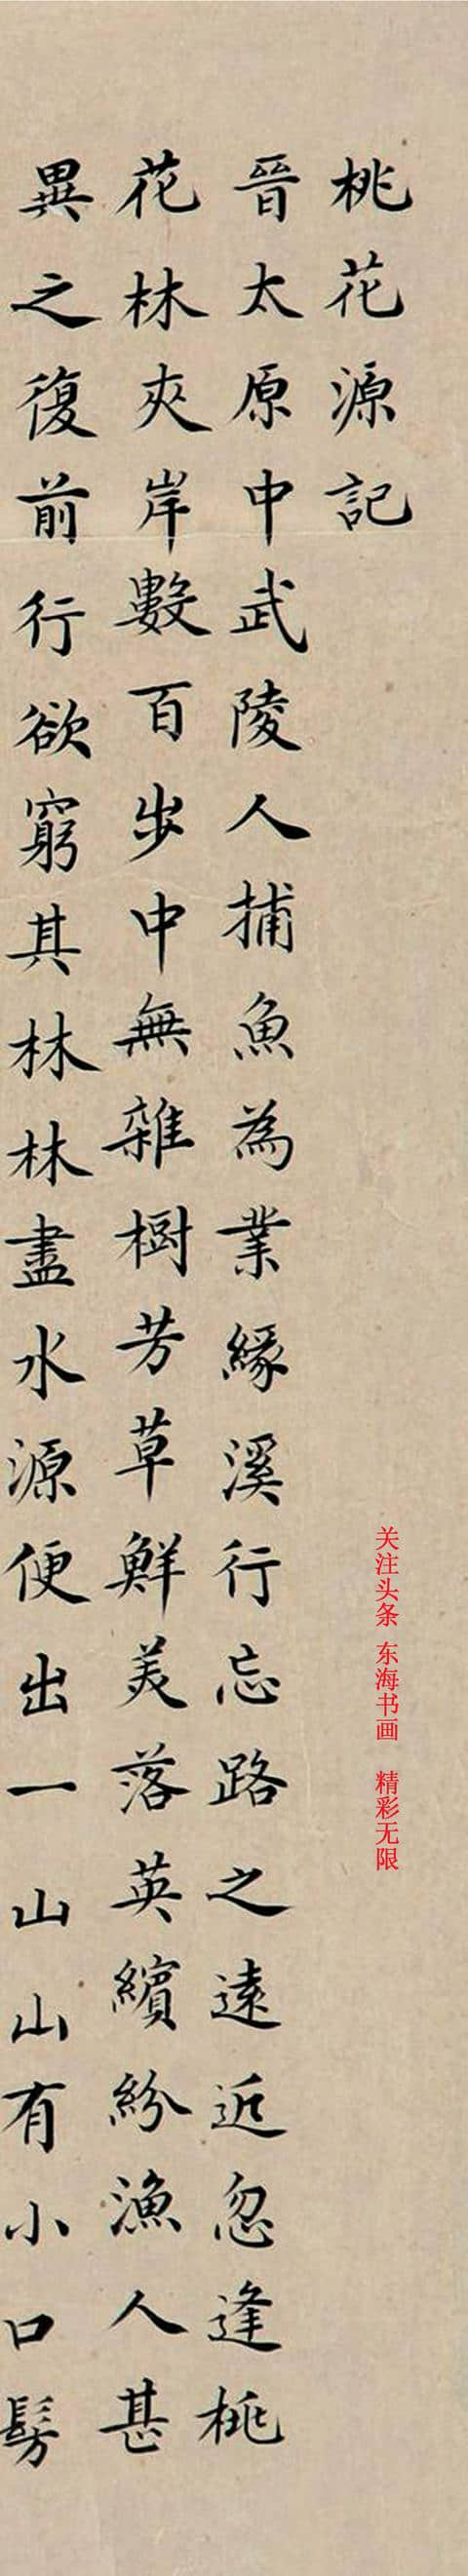 桃花源記
晉太原中武陵人捕魚為業緣溪行忘路之遠近忽逢桃
花林夾岸數百步中無雜樹芳草鮮美落英繽紛漁人甚
異之復前行欲窮其林林盡水源便出一山山有小口髣
关注头条 东海书画 精彩无限